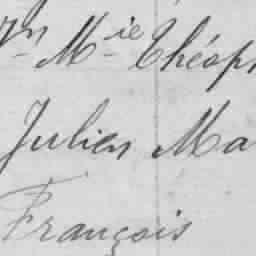 Jn Mie Théoph
Julien Ma
François